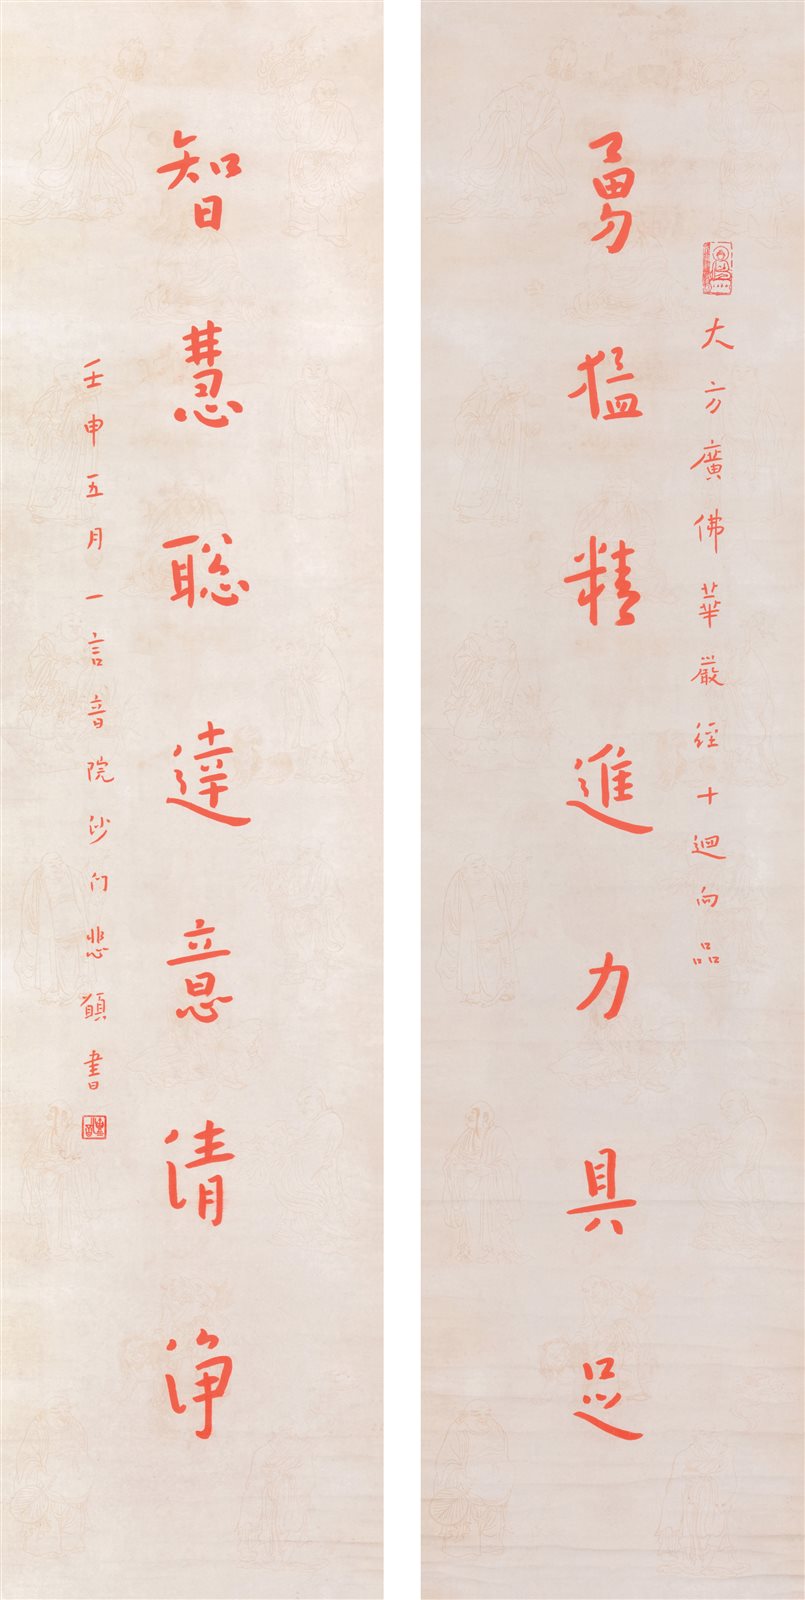 大方廣佛華嚴經十迴向品
勇猛精進力具足
智慧聡達意清浄
壬申五月一言音院沙门悲願書